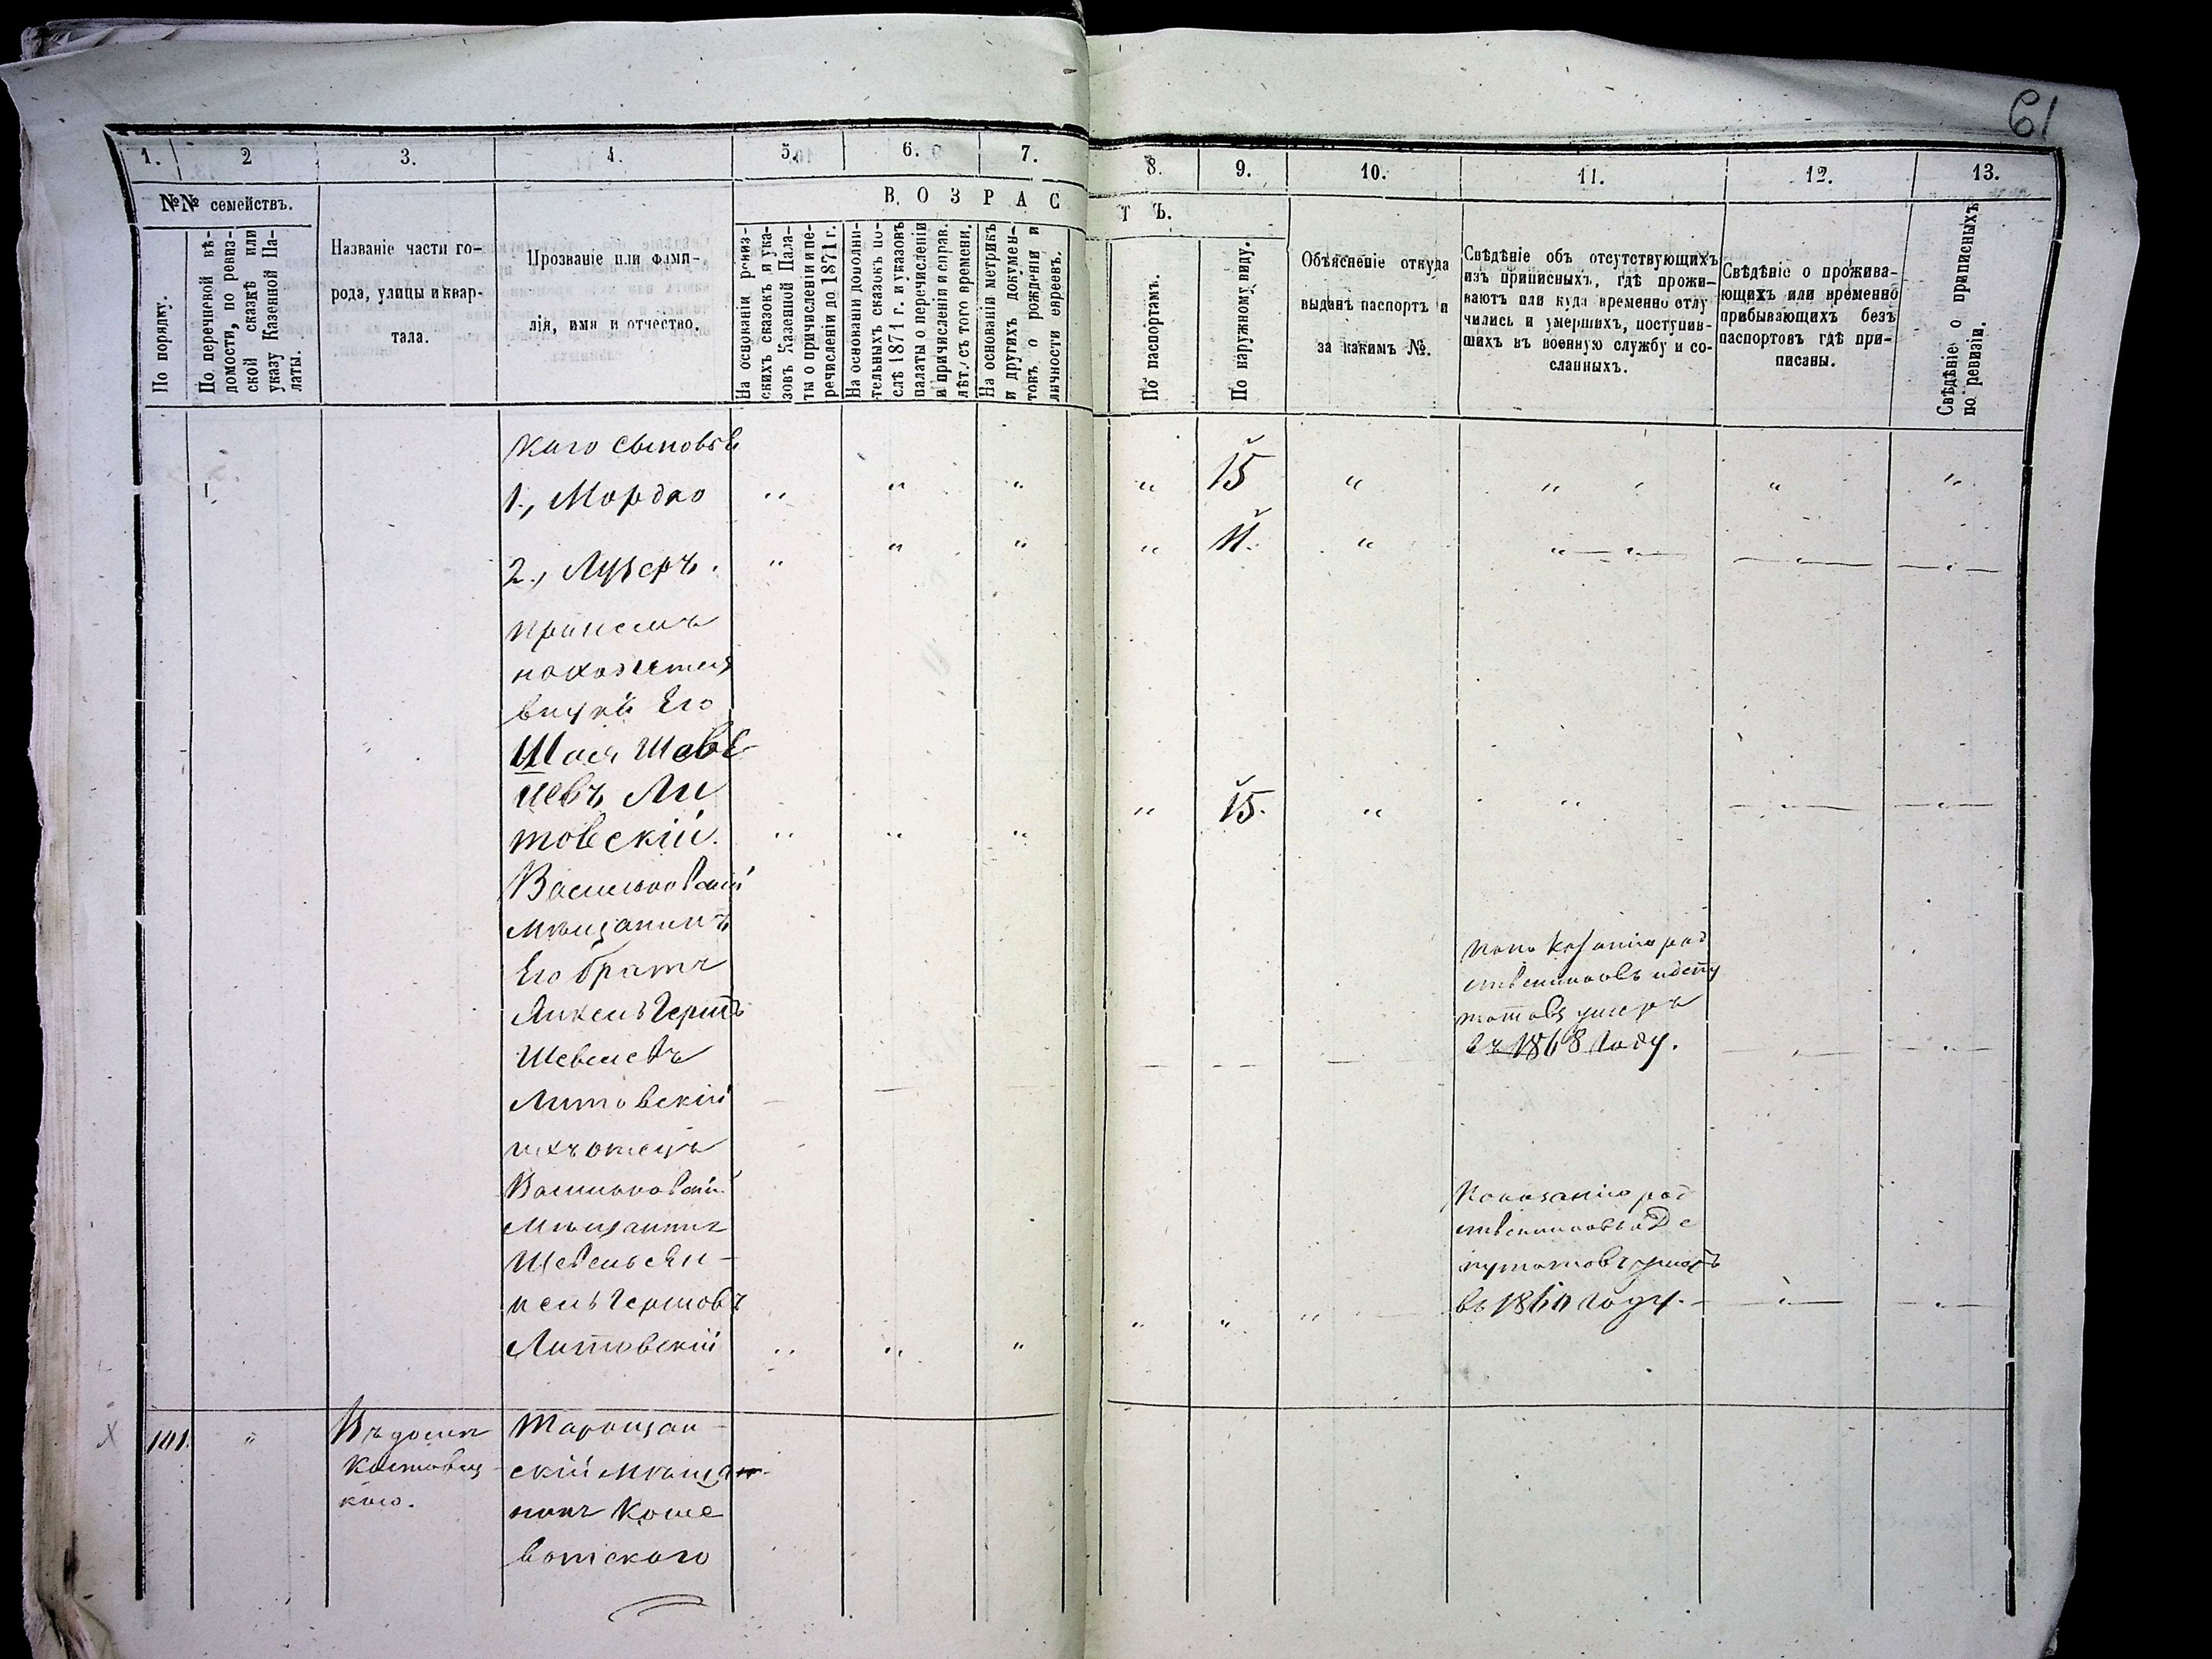 61
1. 2 3. 4. 5. 6. 7. 8. 9. 10. 11. 12. 13.
№№ семействъ.
По порядку.
По перечневой вѣ-
домости, по ревиз-
ской сказкѣ или
указу Казенной Па-
латы.
Названіе части го-
рода, улицы и квар-
тала.
Прозваніе или фами-
лія, имя и отчество.
ВОЗРАСТЪ.
На основаніи ревиз-
скихъ сказокъ и ука-
зовъ Казенной Пала-
ты о причисленіи и пе-
речисленіи до 1871 г.
На основаніи дополни-
тельныхъ сказокъ по-
слѣ 1871 г. и указовъ
палаты о перечисленіи
и причисленіи и справ.
лѣт. съ того времени.
На основаніи метрикъ
и другихъ докумен-
товъ о рожденіи и
личности евреевъ.
По паспортамъ.
По наружному виду.
Объясненіе откуда
выданъ паспортъ и
за какимъ №.
Свѣдѣніе объ отсутствующихъ
изъ приписныхъ, гдѣ прожи-
ваютъ или куда временно отлу
чились и умершихъ, поступив-
шихъ въ военную службу и со-
сланныхъ.
Свѣдѣніе о прожива-
ющихъ или временно
прибывающихъ безъ
паспортовъ гдѣ при-
писаны.
Свѣдѣніе о приписныхъ
по ревизіи.
каго сыновья
1., Мордко " " " " 15 " " " " "
2., Лузеръ. " " " " 11. " " " " "
при немъ
находится
внукъ Его
Шая Шеве
левъ Ли
товскій. " " " " 15. " " " "
Васильковскій
мѣщанинъ
Его братъ
Анкель Герш
Шевелевъ
Литовскій
по показанію род
ственниковъ и депу
татовъ умеръ
въ 1868 году.
ихъ отецъ
Васильковскій
Мѣщанинъ
Шевель
Гершовъ
Литовскій " " " " " "
показанію род
ственниковъ и Де
путатовъ умеръ
въ году.
101. " Въ домѣ
каго.
Таращан
скій мѣщан
нинъ Коше
ватскаго